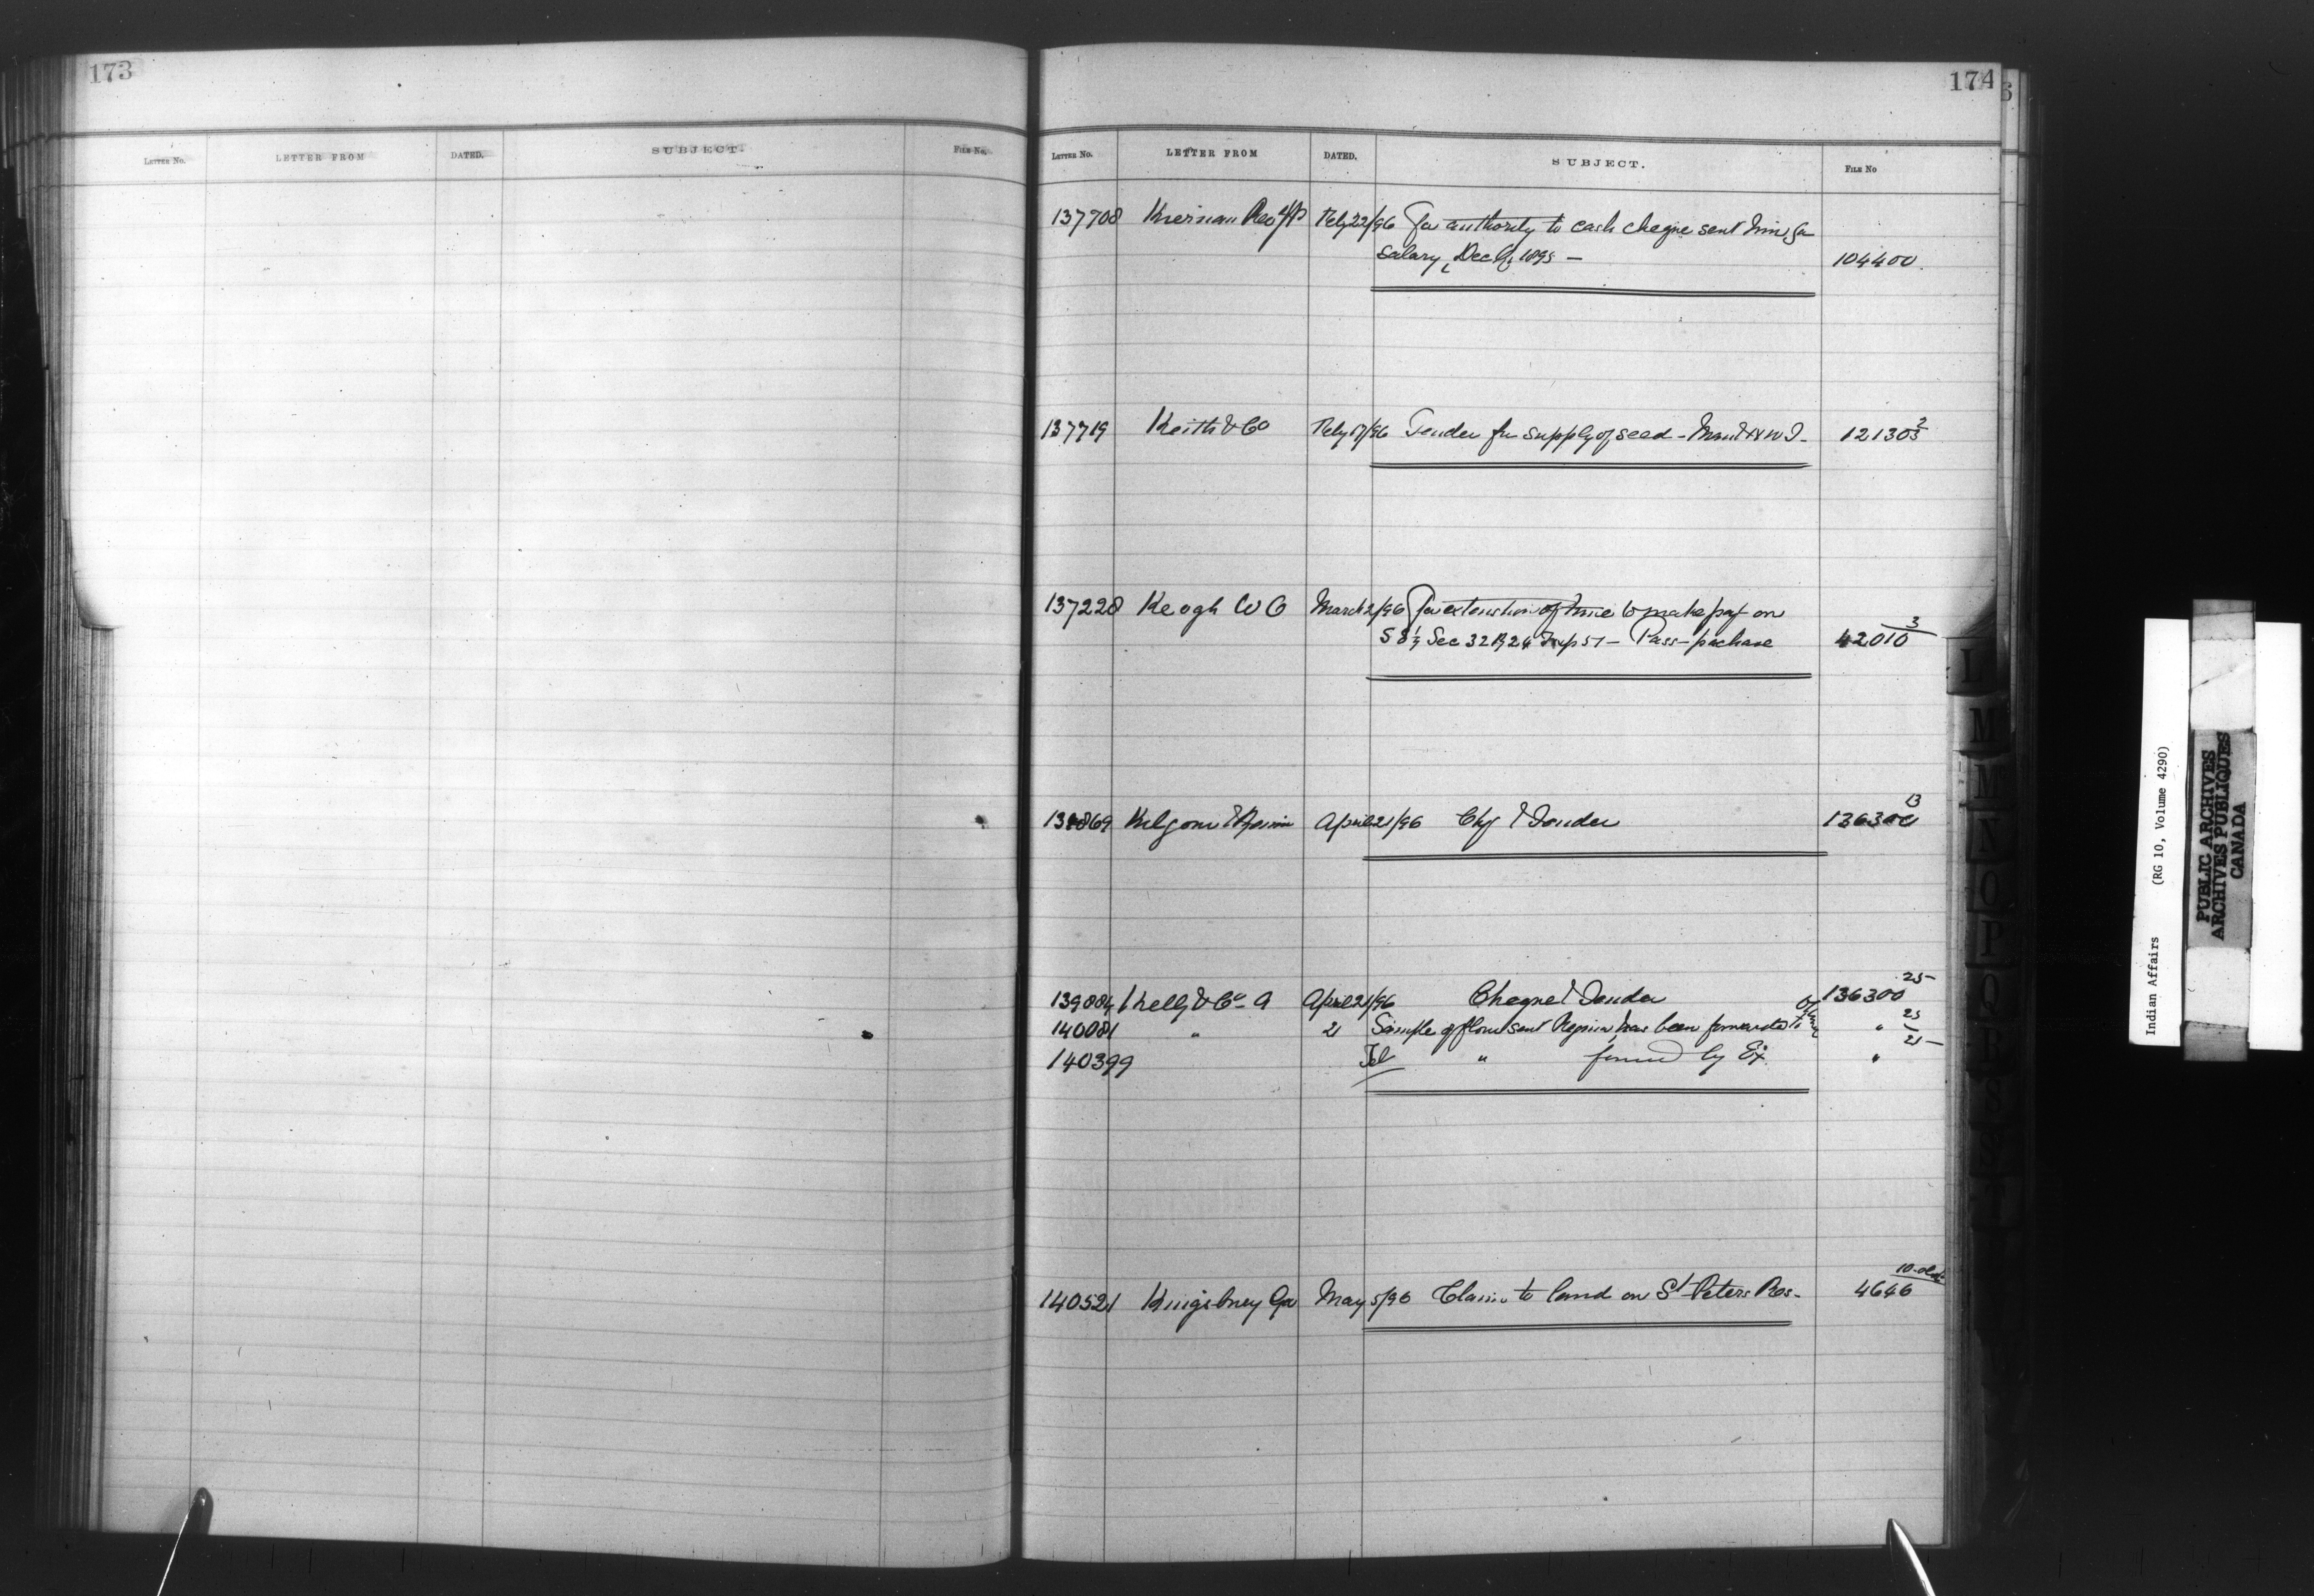 173
LETTER No. LETTER FROM DATED. SUBJECT. FILE No.
174
LETTER No. LETTER FROM DATED. SUBJECT. FILE No
137708 Kiernan Rev Feby 22/96 For authority to cash cheque sent him for
salary, Dec 1895 — 104400
137719 Keith & Co Feby 17/96 Tender for supply of seed - Man & N W T. 121303 2
137228 Keogh W C March 2/96 For extension of time to make pay on
Sec 32 R 26 Twp 51 — Pass - 42010 3
April 21/96 Chq & Tender 136300 13
139884 Kelly & Co A April 21/96 Cheque & Tender 136300 25
140081 " 21 Sample of flour sent Regina has been forwarded to " 25
140399 Tel " by Ex. " 25
140521 Kingsbury Geo May 5/96 Claim to land on St Peters Res - 4646 10
L
M
M
N
O
P
Q
R
S
S
T
Indian Affairs (RG 10, Volume 4290)
PUBLIC ARCHIVES
ARCHIVES PUBLIQUES
CANADA